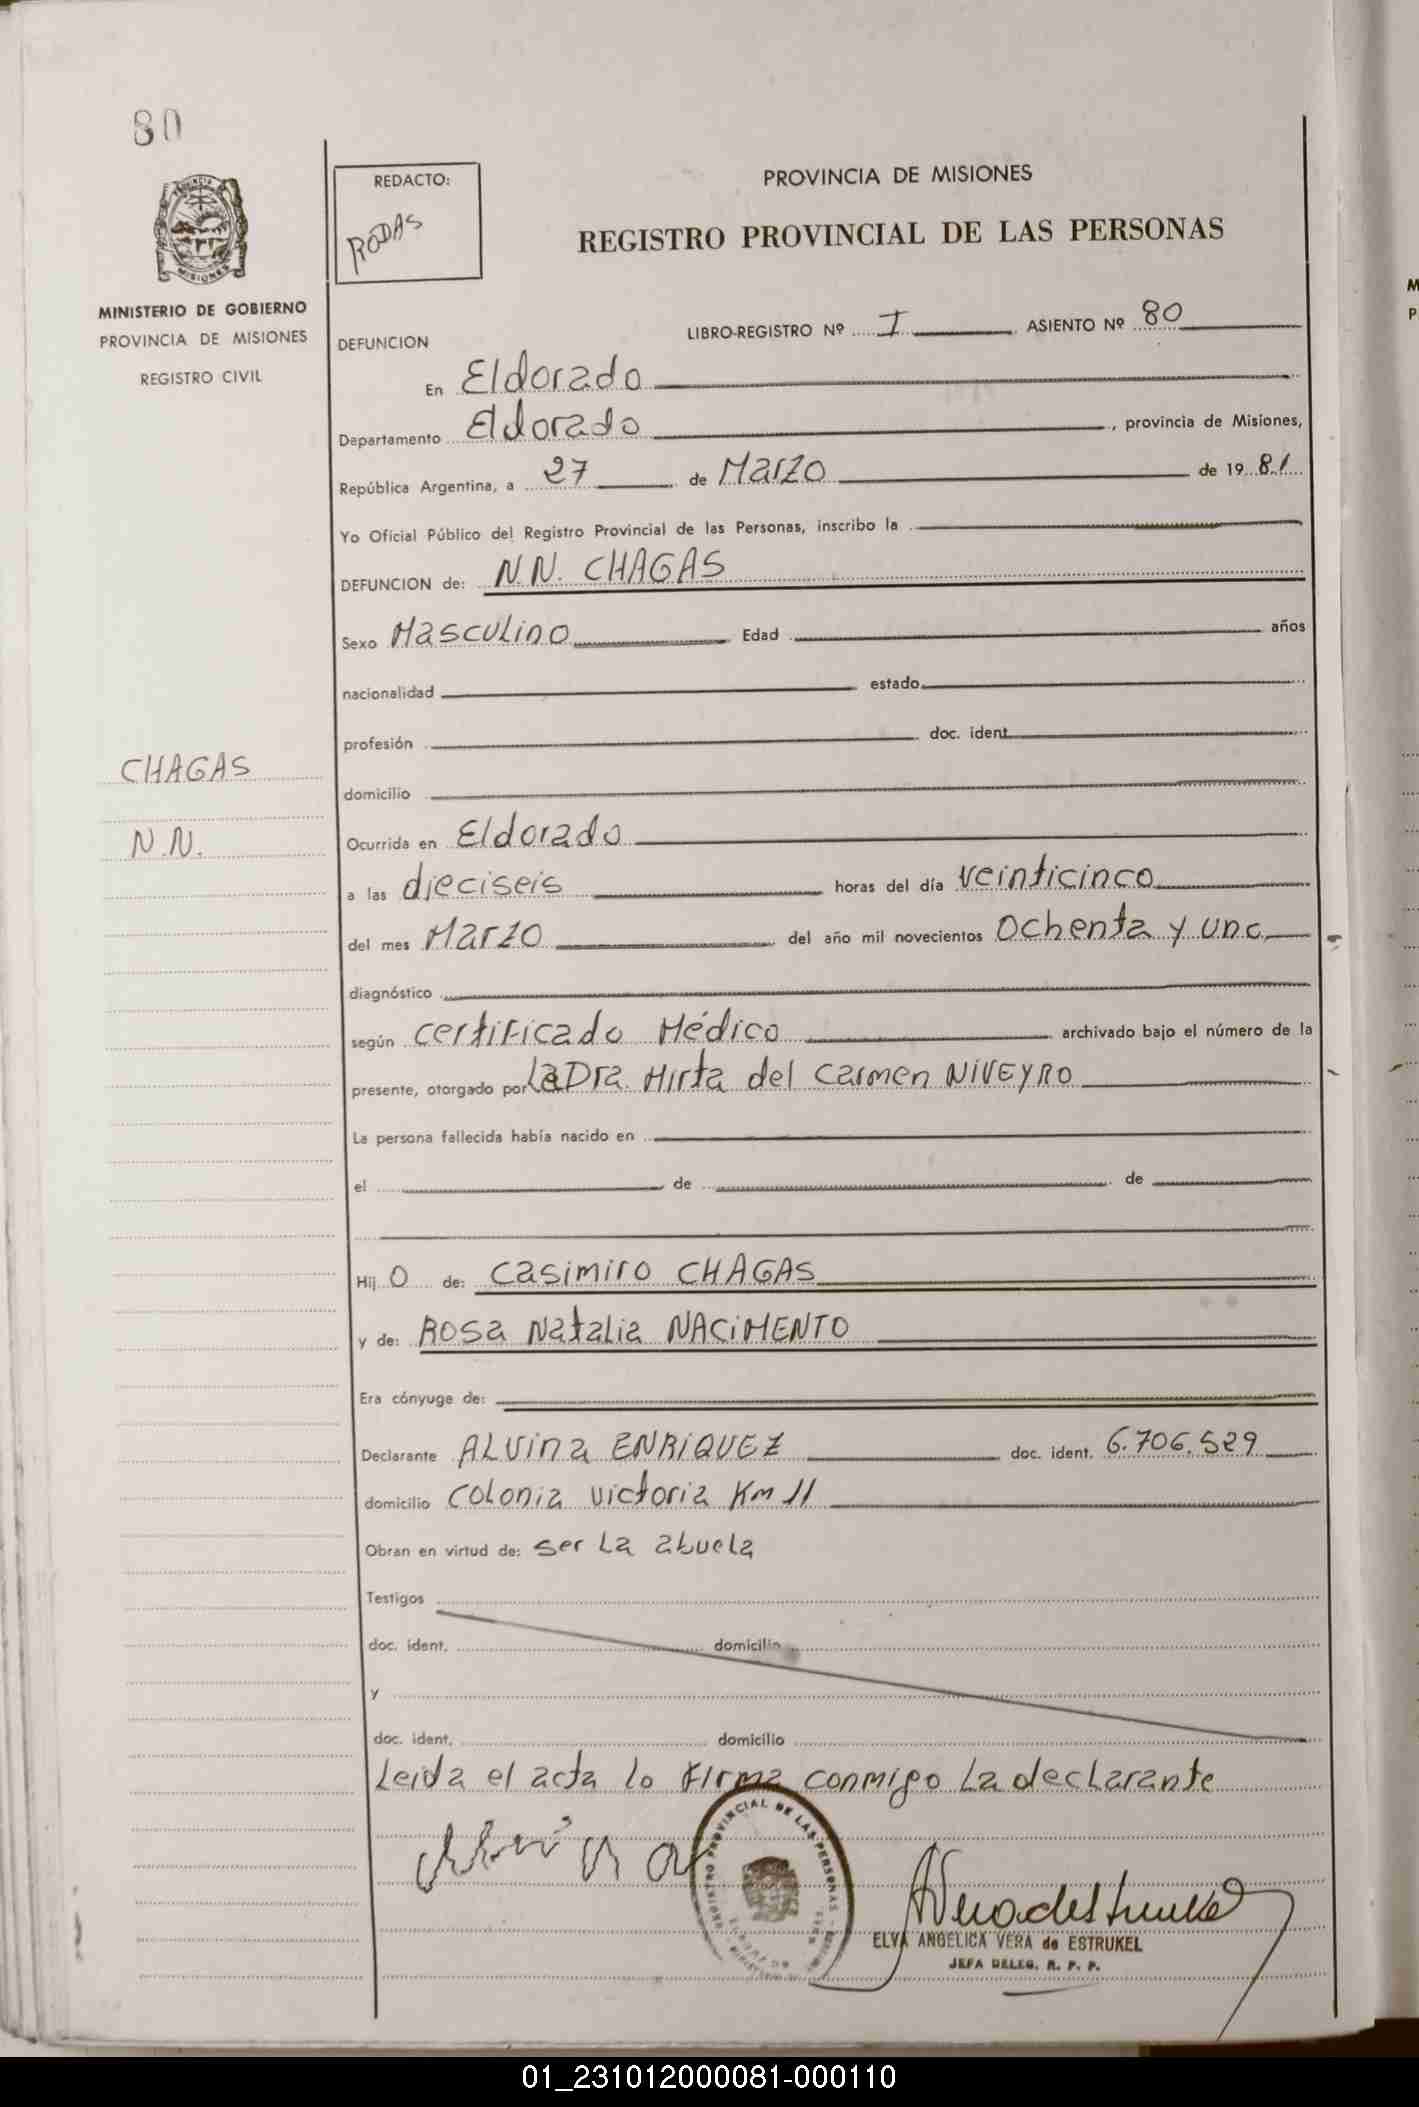 80
PROVINCIA DE MISIONES
REDACTO:
RODAS
REGISTRO PROVINCIAL DE LAS PERSONAS
MINISTERIO DE GOBIERNO
PROVINCIA DE MISIONES
REGISTRO CIVIL
LIBRO-REGISTRO Nº I ASIENTO Nº 80
DEFUNCION
En Eldorado
Departamento Eldorado, provincia de Misiones,
República Argentina, a 27 de Marzo de 1981
Yo Oficial Público del Registro Provincial de las Personas, inscribo la
DEFUNCION de: N.N. CHAGAS
Sexo Masculino Edad años
nacionalidad estado
profesión doc. ident.
CHAGAS
domicilio
N.N.
Ocurrida en Eldorado
a las dieciseis horas del día veinticinco
del mes Marzo del año mil novecientos ochenta y uno
diagnóstico
según certificado Médico archivado bajo el número de la
presente, otorgado por La Dra. Mirta del Carmen NIVEYRO
La persona fallecida había nacido en
el de de
Hijo de: Casimiro CHAGAS
y de: Rosa Natalia NACIMENTO
Era cónyuge de:
Declarante ALVINA ENRIQUEZ doc. ident. 6.706.529
domicilio Colonia Victoria Km 11
Obran en virtud de: ser La abuela
Testigos
doc. ident. domicilio
y
doc. ident. domicilio
Leida el acta lo Firma conmigo La declarante
ELVA ANGELICA VERA de ESTRUKEL
JEFA DELEG. R. P. P.
01_231012000081-000110